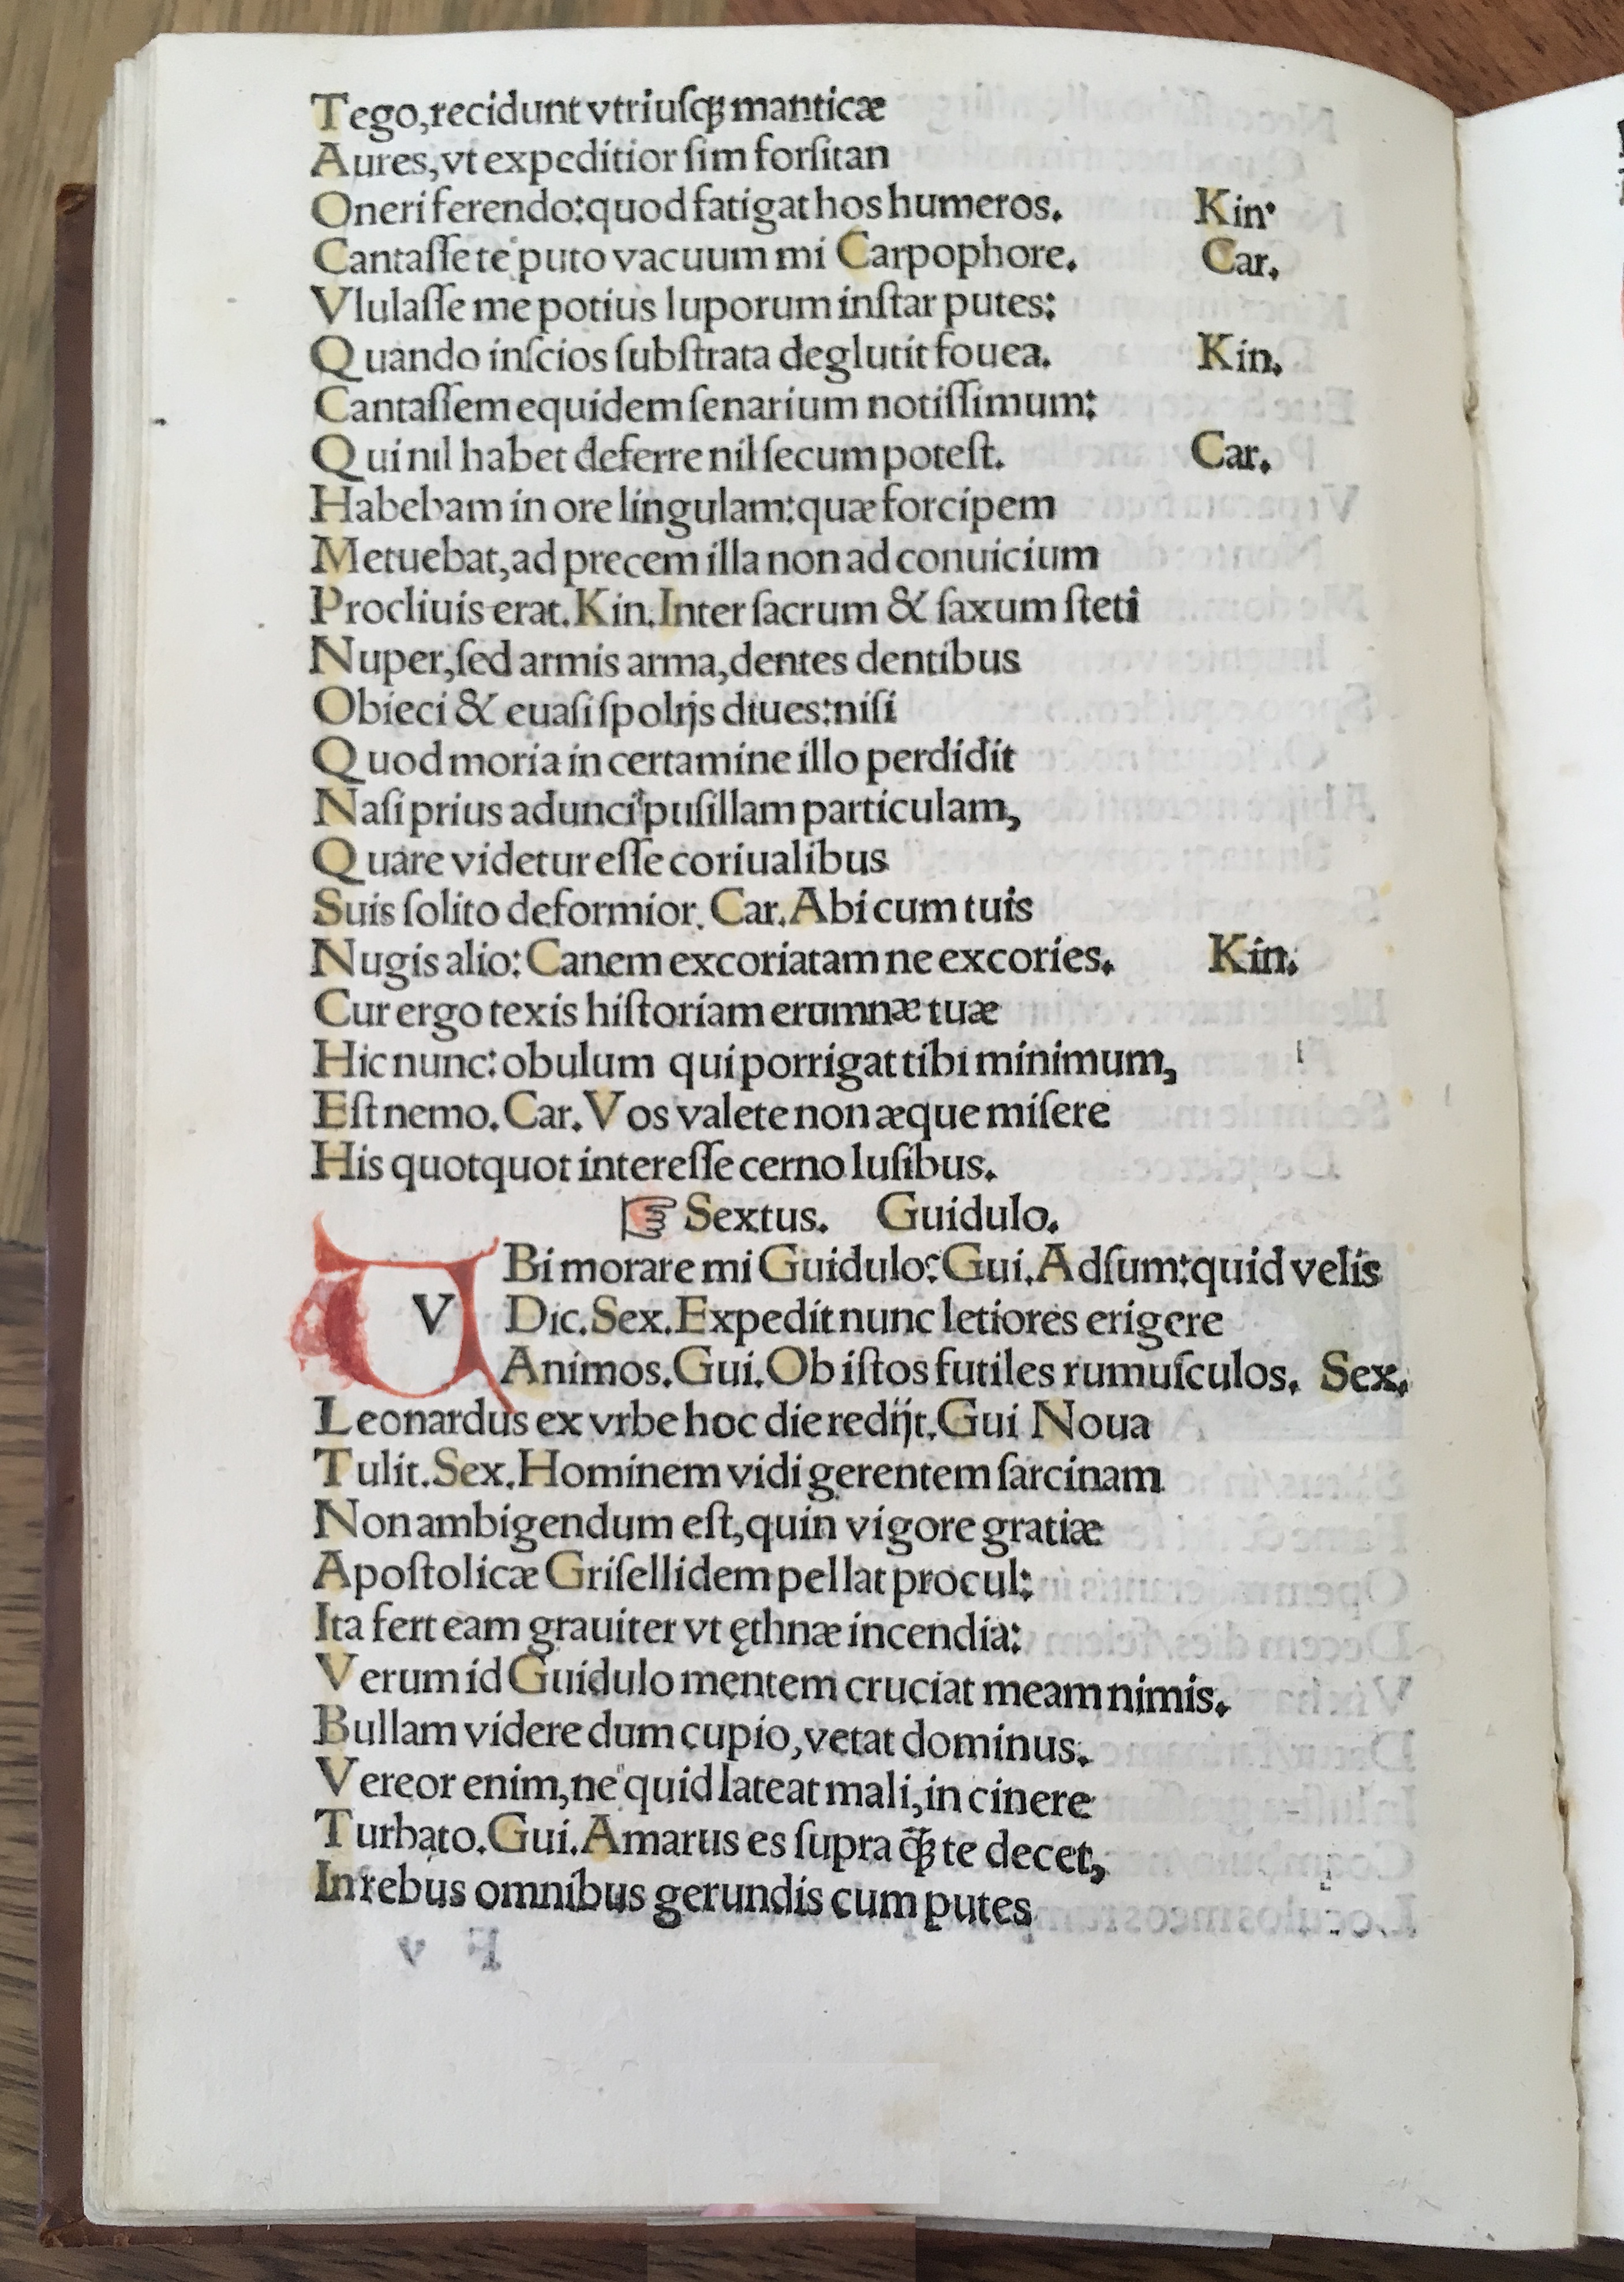 Tego,recidunt vtriuſqꝫ manticæ
Aures,vt expeditior ſim forſitan
Oneri ferendo:quod fatigat hos humeros. Kin.
Cantaſſe te puto vacuum mi Carpophore. Car.
Vlulaſſe me potius luporum inſtar putes:
Quando inſcios ſubſtrata deglutit fouea. Kin.
Cantaſſem equidem ſenarium notiſſimum:
Qui nil habet deferre nil ſecum poteſt. Car.
Habebam in ore lingulam:quæ forcipem
Metuebat,ad precem illa non ad conuicium
Procliuis erat.Kin.Inter ſacrum & ſaxum ſteti
Nuper,ſed armis arma,dentes dentibus
Obieci & euaſi ſpolijs diues:niſi
Quod moria in certamine illo perdidit
Naſi prius adunci puſillam particulam,
Quare videtur eſſe coriualibus
Suis ſolito deformior. Car.Abi cum tuis
Nugis alio:Canem excoriatam ne excories. Kin.
Cur ergo texis hiſtoriam erumnæ tuæ
Hic nunc:obulum qui porrigat tibi minimum,
Eſt nemo.Car.Vos valete non æque miſere
His quotquot intereſſe cerno luſibus.
☞ Sextus. Guidulo.
V Bi morare mi Guidulo?Gui.Adſum:quid velis
Dic.Sex.Expedit nunc letiores erigere
Animos.Gui.Ob iſtos futiles rumuſculos. Sex.
Leonardus ex vrbe hoc die redijt.Gui Noua
Tulit.Sex.Hominem vidi gerentem ſarcinam
Non ambigendum eſt,quin vigore gratiæ
Apoſtolicæ Griſellidem pellat procul:
Ita fert eam grauiter vt ęthnæ incendia:
Verum id Guidulo mentem cruciat meam nimis.
Bullam videre dum cupio,vetat dominus.
Vereor enim,ne quid lateat mali,in cinere
Turbato.Gui.Amarus es ſupra q̃ꝫ te decet,
In rebus omnibus gerundis cum putes